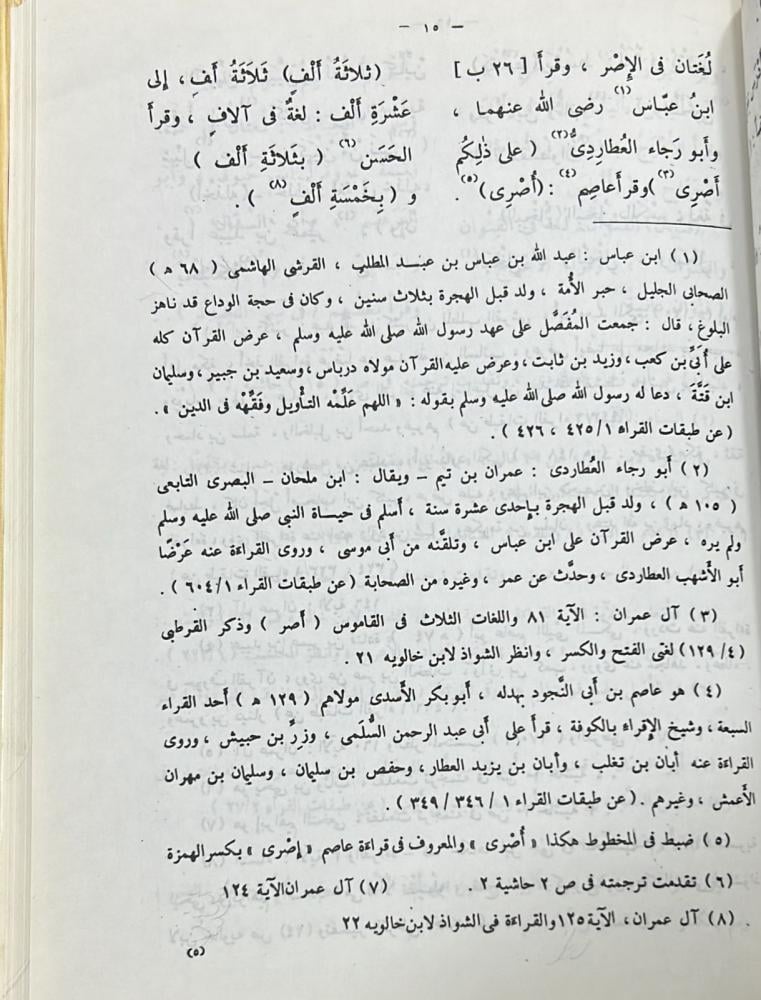 — ١٥ —
لُغَتان فى الإِصْر ، وقرأ [ ٢٦ ب ]
ابنُ عبّاس (١) رضى الله عنهما ،
وأبو رَجاء العُطارِدِىُّ (٢) ( على ذٰلِكُم
أَصْرِى (٣) ) وقرأ عاصِم (٤) : ( أُصْرِى ) (٥) .
( ثلاثَةُ أَلْفٍ ) ثَلَاثَةُ أَفٍ ، إلى
عَشْرَةِ أَلْف : لغةٌ فى آلافٍ ، وقرأ
الحَسَن (٦) ( بثَلاثَةِ أَلْف )
و ( بِخَمْسَةِ أَلْفٍ (٨) ) .
( ١ ) ابن عباس : عبد الله بن عباس بن عبد المطلب ، القرشى الهاشمى ( ٦٨ هـ )
الصحابى الجليل ، حبر الأُمة ، ولد قبل الهجرة بثلاث سنين ، وكان فى حجة الوداع قد ناهز
البلوغ ، قال : جمعت المُفَصَّل على عهد رسول الله صلى الله عليه وسلم ، عرض القرآن كله
على أُبَىِّ بن كعب ، وزيد بن ثابت ، وعرض عليه القرآن مولاه درباس ، وسعيد بن جبير ، وسليمان
ابن قَتَّةَ ، دعا له رسول الله صلى الله عليه وسلم بقوله : « اللهم عَلِّمْه التأْويل وفَقِّهْه فى الدين » .
( عن طبقات القراء ١/ ٤٢٥ ، ٤٢٦ ) .
( ٢ ) أَبو رجاء العُطاردى : عمران بن تيم – ويقال : ابن ملحان – البصرى التابعى
( ١٠٥ هـ ) ، ولد قبل الهجرة بإحدى عشرة سنة ، أَسلم فى حياة النبى صلى الله عليه وسلم
ولم يره ، عرض القرآن على ابن عباس ، وتلقَّنه من أَبى موسى ، وروى القراءة عنه عَرْضًا
أَبو الأَشهب العطاردى ، وحدَّث عن عمر ، وغيره من الصحابة ( عن طبقات القراء ١/ ٦٠٤ ) .
( ٣ ) آل عمران : الآية ٨١ واللغات الثلاث فى القاموس ( أصر ) وذكر القرطبى
( ٤/ ١٢٩ ) لغتى الفتح والكسر ، وانظر الشواذ لابن خالويه ٢١ .
( ٤ ) هو عاصم بن أَبى النَّجود بهدله ، أَبو بكر الأَسدى مولاهم ( ١٢٩ هـ ) أَحد القراء
السبعة ، وشيخ الإِقراء بالكوفة ، قرأ على أَبى عبد الرحمن السُّلَمى ، وزرِّ بن حبيش ، وروى
القراءة عنه أَبان بن تغلب ، وأَبان بن يزيد العطار ، وحفص بن سليمان ، وسليمان بن مهران
الأَعمش ، وغيرهم . ( عن طبقات القراء ١ / ٣٤٦ / ٣٤٩ ) .
( ٥ ) ضبط فى المخطوط هكذا « أُصْرى » والمعروف فى قراءة عاصم « إِصْرى » بكسر الهمزة
( ٦ ) تقدمت ترجمته فى ص ٢ حاشية ٢ . ( ٧ ) آل عمران الآية ١٢٤
( ٨ ) آل عمران ، الآية ١٢٥ والقراءة فى الشواذ لابن خالويه ٢٢
(٥)